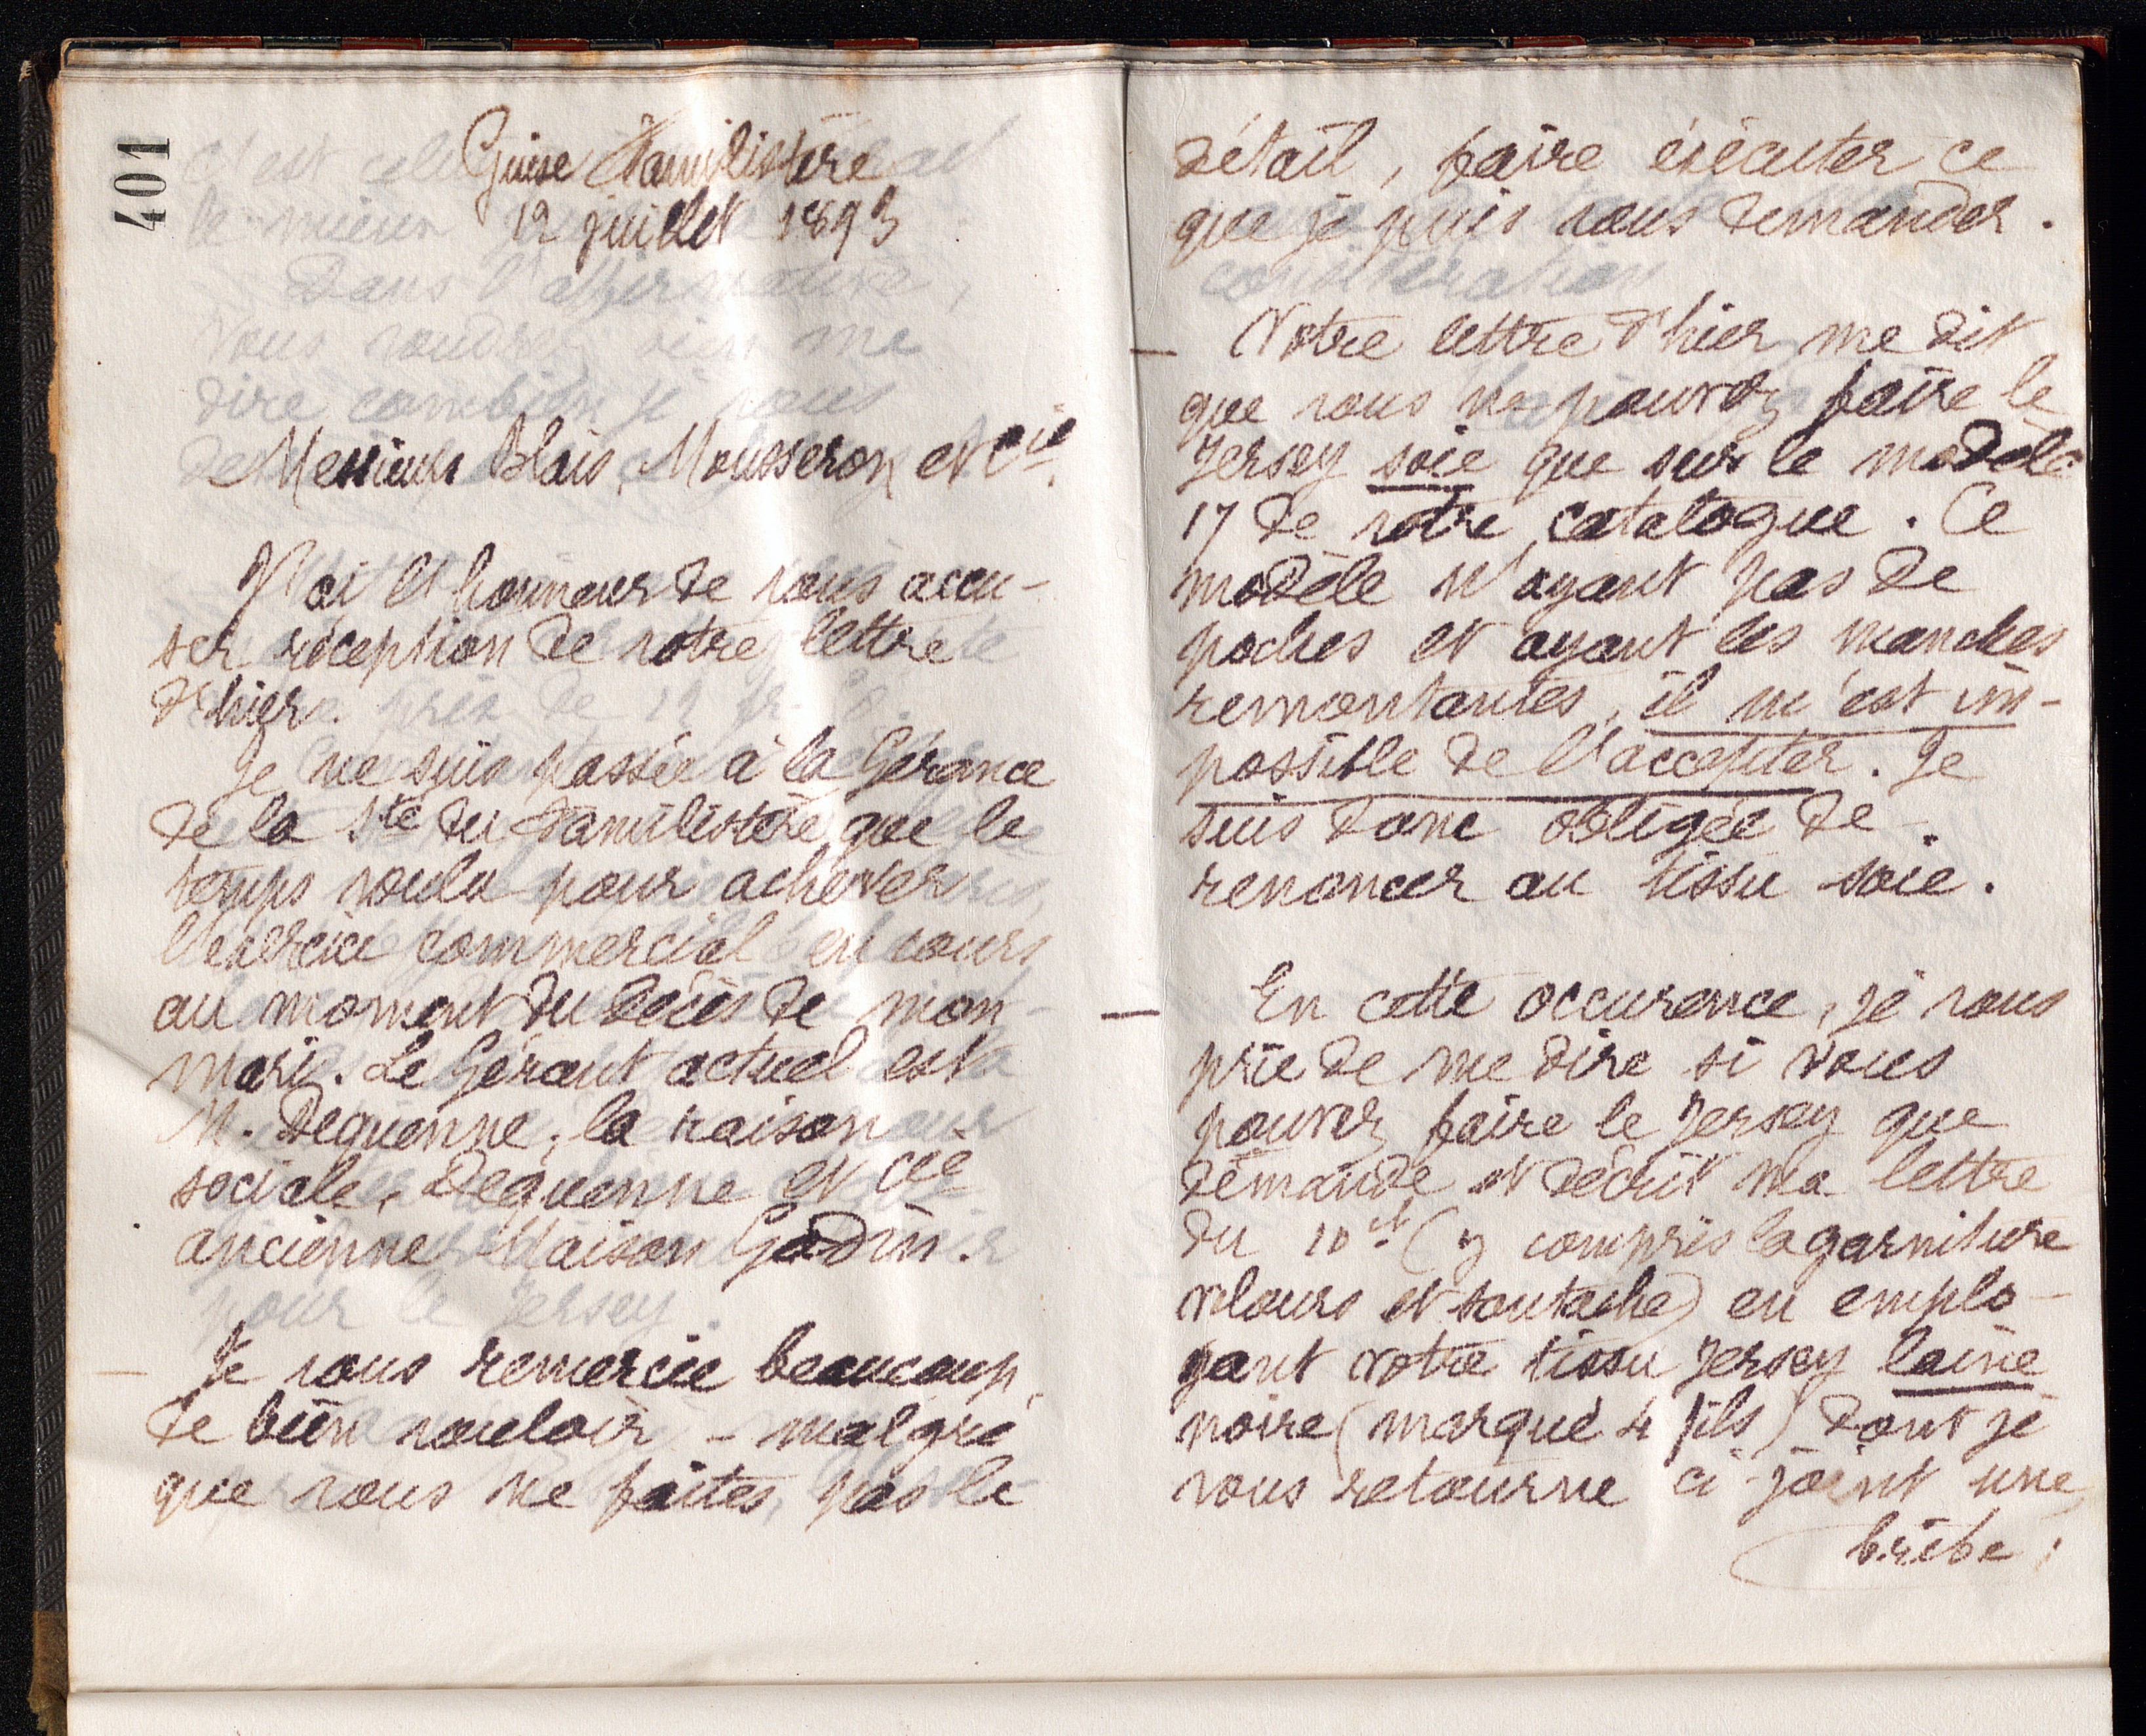 401
Guise Familistère
12 juillet 1893
Messieurs Blais, Mousseron et Cie.
J'ai l'honneur de vous accu-
ser réception de votre lettre
d'hier.
Je ne suis passée à la Gérance
de la Sté du Familistère que le
temps voulu pour achever
l'exercice commercial en cours
au moment du décès de mon
mari. Le Gérant actuel est
M. Dequenne; la raison
sociale, Dequenne et Cie
ancienne Maison Godin.
— Je vous remercie beaucoup
de bien vouloir - malgré
que vous ne faites pas le
détail, faire exécuter ce
que je puis vous demander.
— Votre lettre d'hier me dit
que vous ne pouvez faire le
Jersey soie que sur le modèle
17 de votre catalogue. Ce
modèle n'ayant pas de
poches et ayant les manches
remontantes, il m'est im-
possible de l'accepter. Je
suis donc obligée de
renoncer au tissu soie.
— En cette occurence, je vous
prie de me dire si vous
pouvez faire le Jersey que
demande et décrit ma lettre
du 10 ct (y compris la garniture
velours et soutache) en emplo-
yant votre tissu Jersey laine
noire (marqué 4 fils) dont je
vous retourne ci-joint une
bribe;
c'est
le mieux
Dans l'affirmative,
Vous voudrez bien me
dire combien je vous
prix de 12 fr.
pour le Jersey.
considération